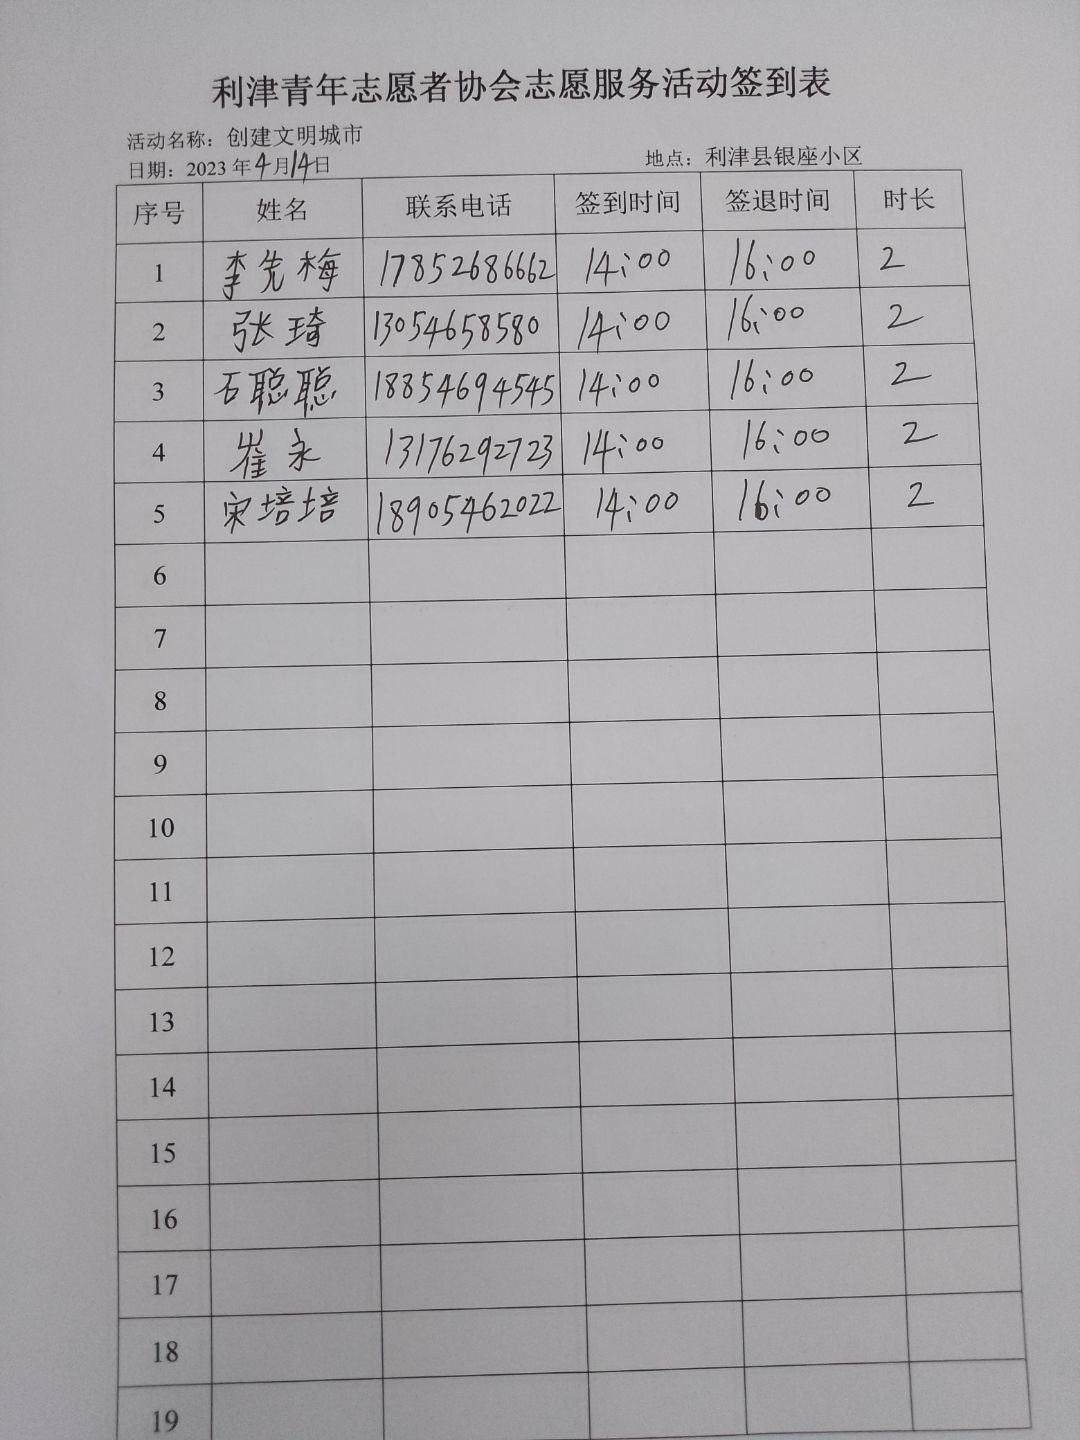 利津青年志愿者协会志愿服务活动签到表
活动名称：创建文明城市
日期：2023年4月14日 地点：利津县银座小区
序号 姓名 联系电话 签到时间 签退时间 时长
1 李先梅 17852686662 14:00 16:00 2
2 张琦 13054658580 14:00 16:00 2
3 石聪聪 18854694545 14:00 16:00 2
4 崔永 13176292723 14:00 16:00 2
5 宋培培 18905462022 14:00 16:00 2
6
7
8
9
10
11
12
13
14
15
16
17
18
19